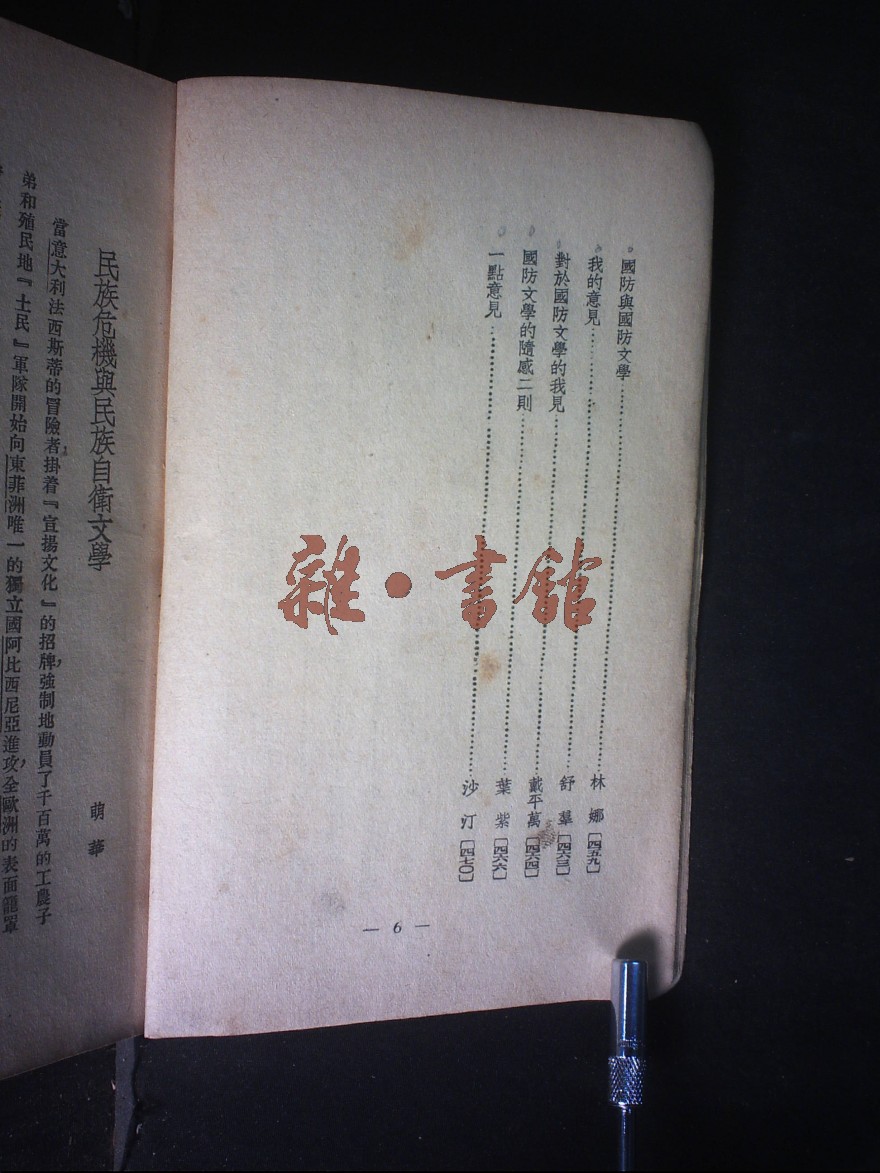 國防與國防文學……林娜〔四五九〕
我的意見……舒羣〔四六三〕
對於國防文學的我見……戴平萬〔四六四〕
國防文學的隨感二則……葉紫〔四六六〕
一點意見……沙汀〔四七〇〕
— 6 —
雜·書館
民族危機與民族自衛文學
萌華
當意大利法西斯蒂的冒險者，掛着『宣揚文化』的招牌，強制地動員了千百萬的工農子
弟和殖民地『土民』軍隊開始向東菲洲唯一的獨立國阿比西尼亞進攻，全歐洲的表面籠罩